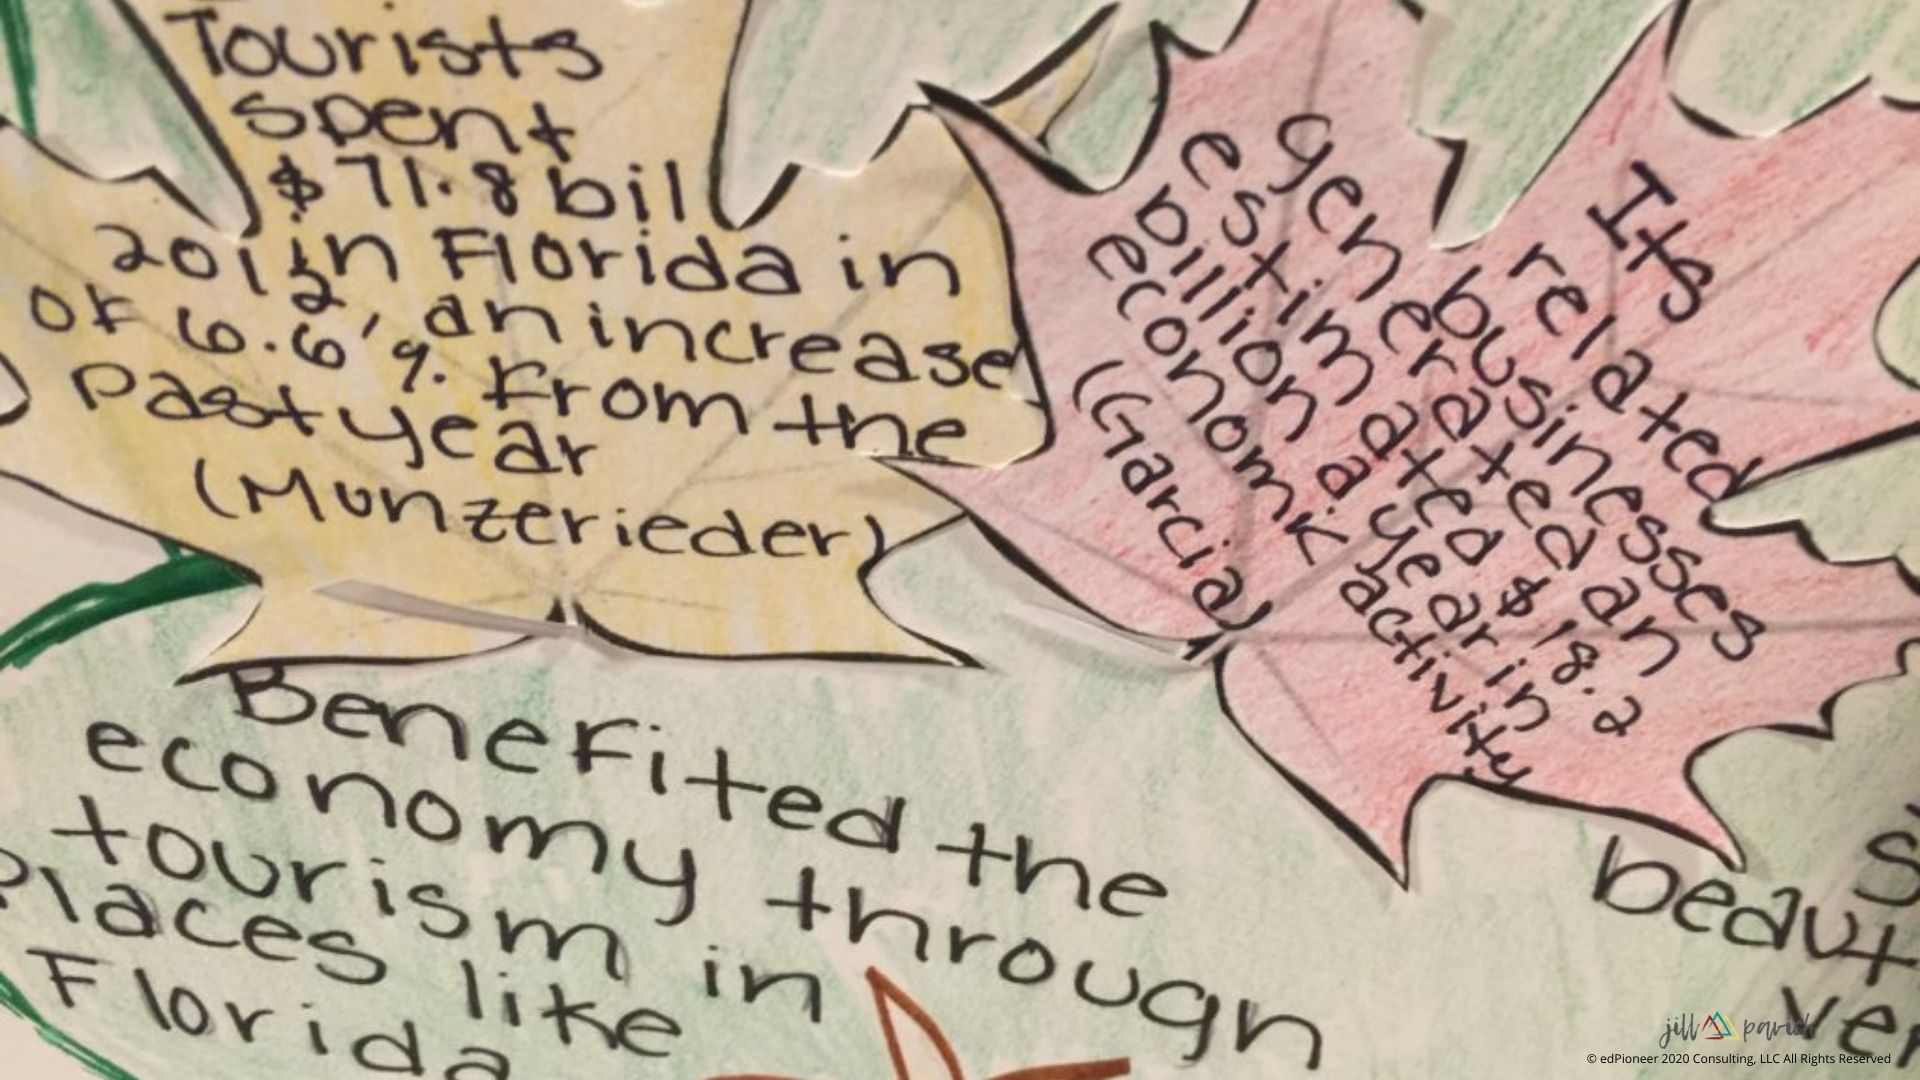 Tourists
spent
$71.8 bil
in Florida in
2012, an increase
of 6.6% from the
past year
(Munzerieder)
Its
related
businesses
generated an
estimated $18.2
billion a year in
economic activity
(Garcia)
Benefited the
economy through
tourism in
places like
Florida
beaut
ver
jill pavich
© edPioneer 2020 Consulting, LLC All Rights Reserved